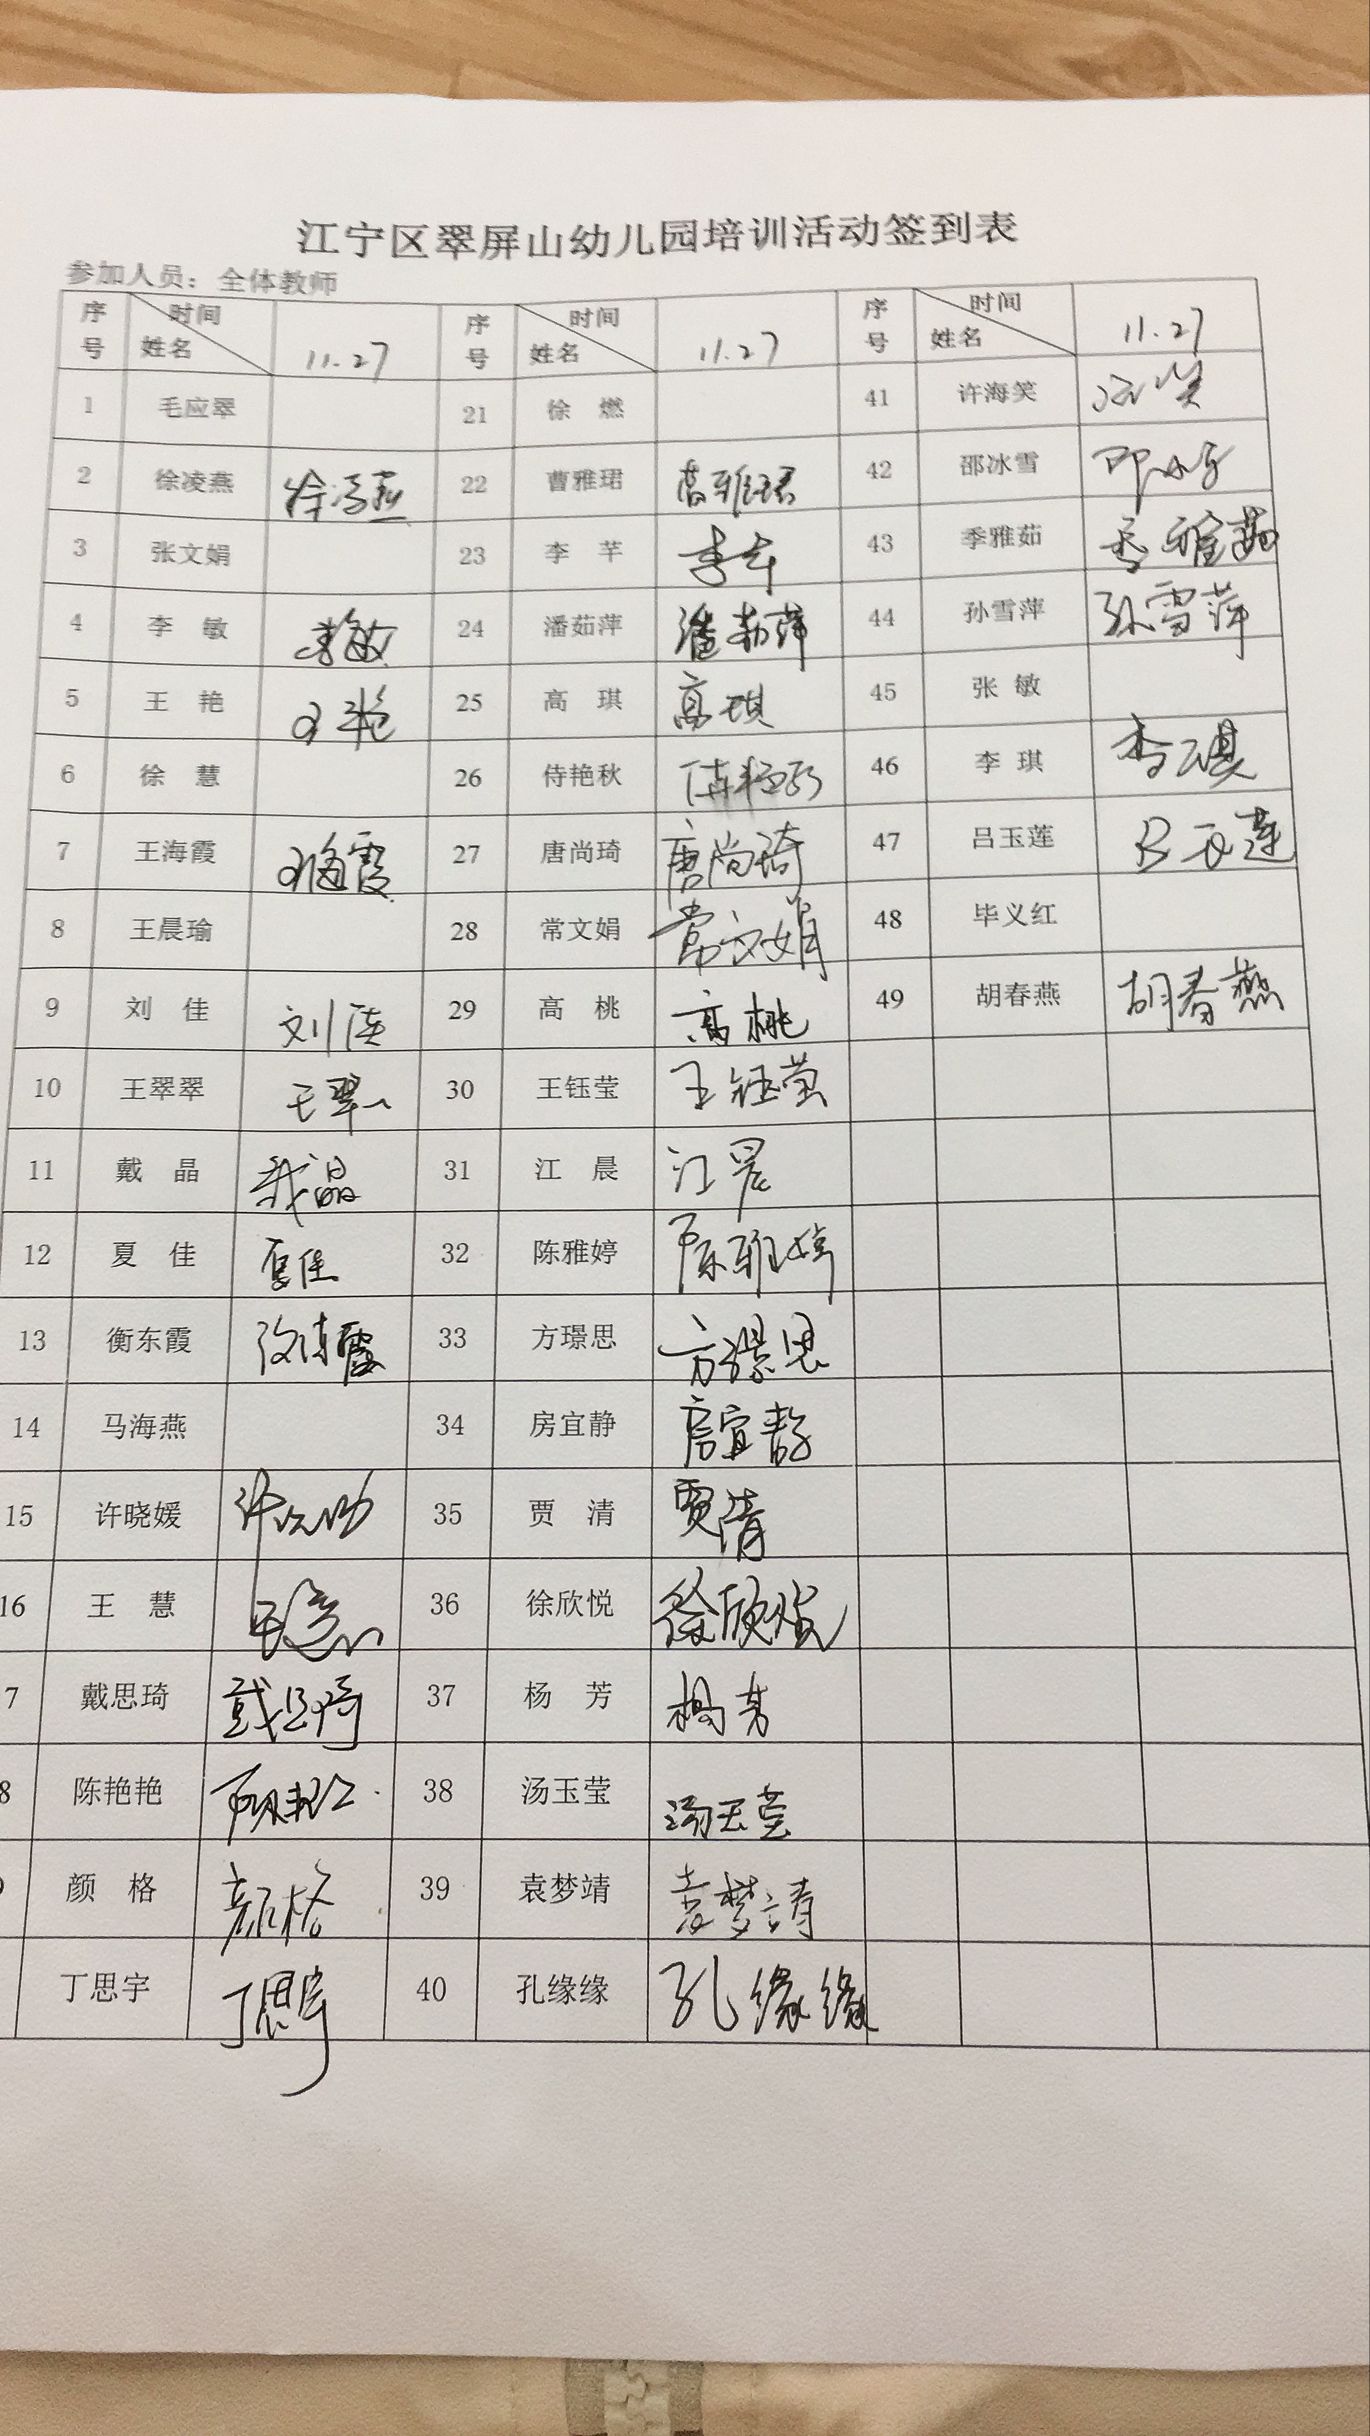 江宁区翠屏山幼儿园培训活动签到表
参加人员：全体教师
序号 时间 姓名 11.27 序号 时间 姓名 11.27 序号 时间 姓名 11.27
1 毛应翠 21 徐 燃 41 许海笑
2 徐凌燕 徐凌燕 22 曹雅珺 曹雅珺 42 邵冰雪
3 张文娟 23 李 芊 李芊 43 季雅茹 季雅茹
4 李 敏 李敏 24 潘茹萍 潘茹萍 44 孙雪萍 孙雪萍
5 王 艳 王艳 25 高 琪 高琪 45 张 敏
6 徐 慧 26 侍艳秋 侍艳秋 46 李 琪 李琪
7 王海霞 王海霞 27 唐尚琦 唐尚琦 47 吕玉莲 吕玉莲
8 王晨瑜 28 常文娟 常文娟 48 毕义红
9 刘 佳 刘佳 29 高 桃 高桃 49 胡春燕 胡春燕
10 王翠翠 王翠 30 王钰莹 王钰莹
11 戴 晶 戴晶 31 江 晨 江晨
12 夏 佳 夏佳 32 陈雅婷 陈雅婷
13 衡东霞 33 方璟思 方璟思
14 马海燕 34 房宜静 房宜静
15 许晓媛 35 贾 清 贾清
16 王 慧 王慧 36 徐欣悦 徐欣悦
7 戴思琦 戴思琦 37 杨 芳 杨芳
8 陈艳艳 陈艳 38 汤玉莹 汤玉莹
颜 格 颜格 39 袁梦靖 袁梦靖
丁思宇 丁思宇 40 孔缘缘 孔缘缘